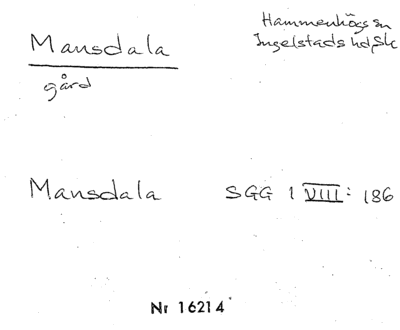 Mansdala
Hammenhögs sn
Ingelstads hd, Sk
gård
Mansdala SGG 1 VIII: 186
Nr 16214